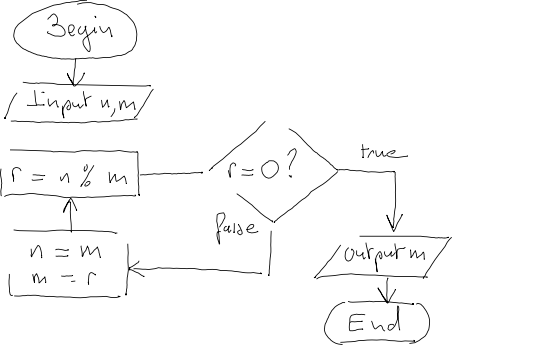 Begin
Input n,m
r = n % m
r = 0 ?
true
false
n = m
m = r
output m
End